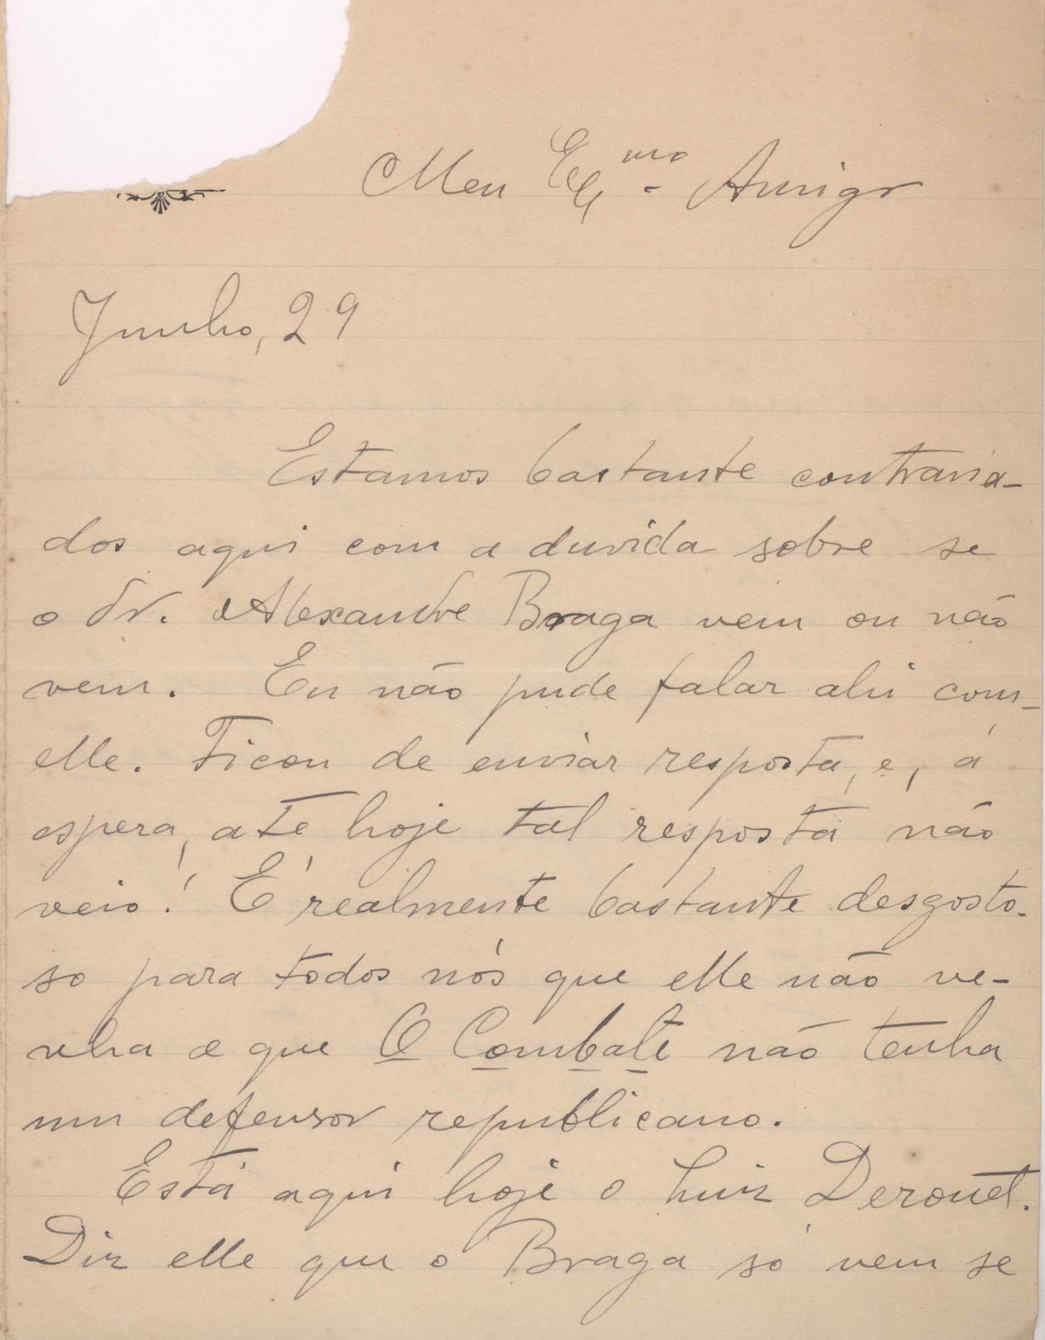 Meu Ex.mo Amigo
Junho, 29
Estamos bastante contraria-
dos aqui com a duvida sobre se
o dr. Alexandre Braga vem ou não
vem. Eu não pude falar ahi com-
elle. Ficou de enviar resposta, e, á
espera, até hoje tal resposta não
veio! É realmente bastante desgosto-
so para todos nós que elle não ve-
nha e que O Combate não tenha
um defensor republicano.
Está aqui hoje o Luiz Derouet.
Diz elle que o Braga só vem se